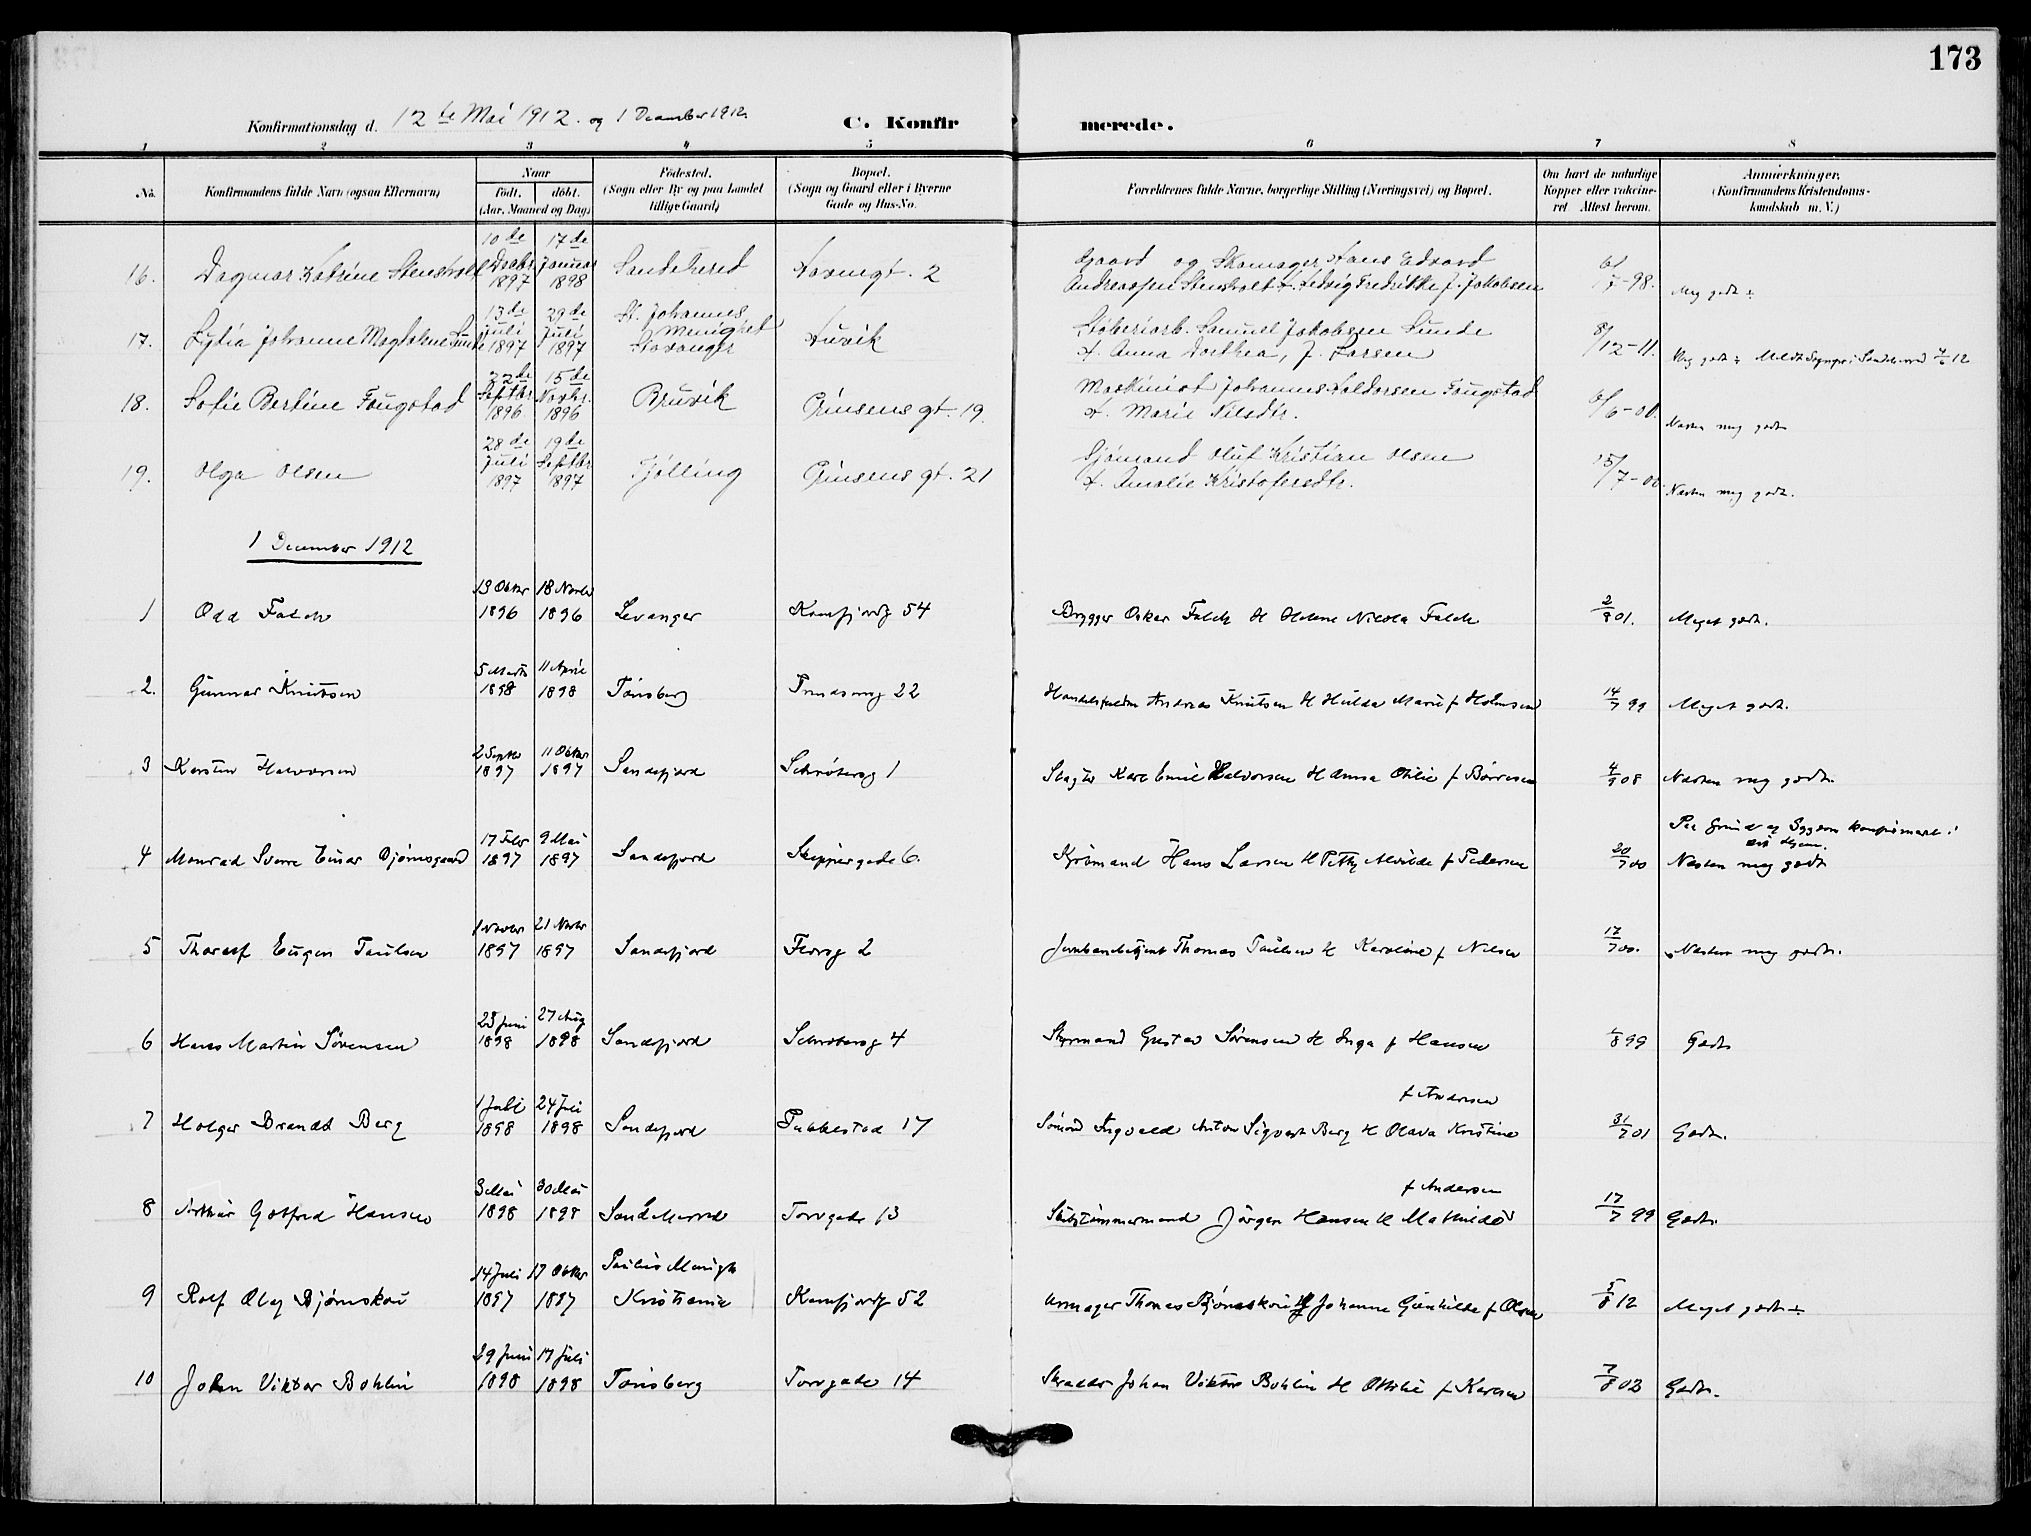 173
Konfirmationsdag d. 12te Mai 1912. og 1 December 1912
C. Konfirmerede.
1 2 3 4 5 6 7 8
No. Konfirmandens fulde Navn (ogsaa Efternavn) Naar født. døbt. (Aar, Maaned og Dag) Fødested. (Sogn eller By og paa Landet tillige Gaard) Bopæl. (Sogn og Gaard eller i Byerne Gade og Hus-No. Forældrenes fulde Navne, borgerlige Stilling (Næringsvei) og Bopæl. Om havt de naturlige Kopper eller vaccineret. Attest herom. Anmærkninger, (Konfirmandens Kristendomskundskab m. V.)
16. Dagmar Katrine Stensholt 10de Decbr. 1897 17de Januar 1898 Sandeherred 2 Gaard og Skomager Hans Edvard
Andreassen Stensholt Hedvig Fredrikke f. Jakobsen 7-98. Meg godt ÷
17. Lylia Johanne Magdalene Sunde 13de Juli 1897 29de Juli 1897 St. Johannes Menighed Stavanger Huvik Støberiarb. Samuel Jakobsen Sunde
Anna Dorthea, f. Larsen 8/12-11. Meg godt ÷
18. Sofie Bertine Fougstad 22de Septbr. 1896 15de Novbr. 1896 Bruvik Prinsensgt. 19. Maskinist Johannes Haldorsen Fougstad
Marie Nilsdtr. 6/6-00. Næsten meg godt
19. Olga Olsen 28de Juli 1897 19de Septbr 1897 Tjølling Prinsensgt. 21 Sjømand Oluf Kristian Olsen
Amalie Kristofersdtr. 15/7-00 Næsten meg godt.
1 December 1912
1 Odd Falch 13 Oktbr 1896 18 Novbr 1896 Levanger Kamfjordg 54 Brygger Oskar Falch H Helene Nicola Falch 2/9 01. Meget godt.
2. Gunnar Knutsen 5 Marts 1898 11 April 1898 Tønsberg 22 Andreas Knutsen H Hulda Marie f Holmsen 14/7 99 Meget godt.
3 Karsten Halvorsen 2 Septbr 1897 11 Oktbr 1897 Sandefjord Schrøtersg 1 Slagter Karl Emil Halvorsen H Anna Otilie f Børresen 4/9 08 Næsten meg godt.
4 Monrad Sverre Einar Bjørnsgaard 17 Febr 1897 9 Mai 1897 Sandefjord Skippergade 6. Styrmand Hans Larsen H Petty Alvilde f Pedersen 20/7 00 Paa Grund af Sygdom konfirmert i
sit Hjem.
Næsten meg godt
5 Thoralf Eugen Paulsen 1 Novbr 1897 21 Novbr 1897 Sandefjord 2 Jernbanebetjent Thomas Paulsen H Karoline f Nilsen 17/7 00. Næsten meg godt.
6 Hans Martin Sørensen 23 Juni 1898 27 Aug 1898 Sandefjord Schrøtersg 4 Styrmand Gustav Sørensen H Inga f Hansen 8 99 Godt
7 Holger Brandt Berg 1 Juli 1898 24 Juli 1898 Sandefjord Pukkestad 17 Sømand Ingvald Anton Sigvart Berg H Olava Kristine
f Andersen 31/7 01 Godt.
8 Arthur Gotfred Hansen 3 Mai 1898 30 Mai 1898 Sandeherred Torvgade 13 Skibstømmermand Jørgen Hansen H Mathilde
f Andersen 17/7 99 Godt.
9 Rolf Olaf Bjørnskau 14 Juli 1897 17 Oktbr 1897 Paulus Menigh Kristiania Kamfjordg 52 Urmager Thomas Bjørnskau H Johanne Gunhilde f Olsen 5/8 12 Meget godt ÷
10 John Viktor Bohlin 29 Juni 1898 17 Juli 1898 Tønsberg Torvgade 14 Skrædder Johan Viktor Bohlin H Ottilie f Karlsen 7/8 03 Godt.